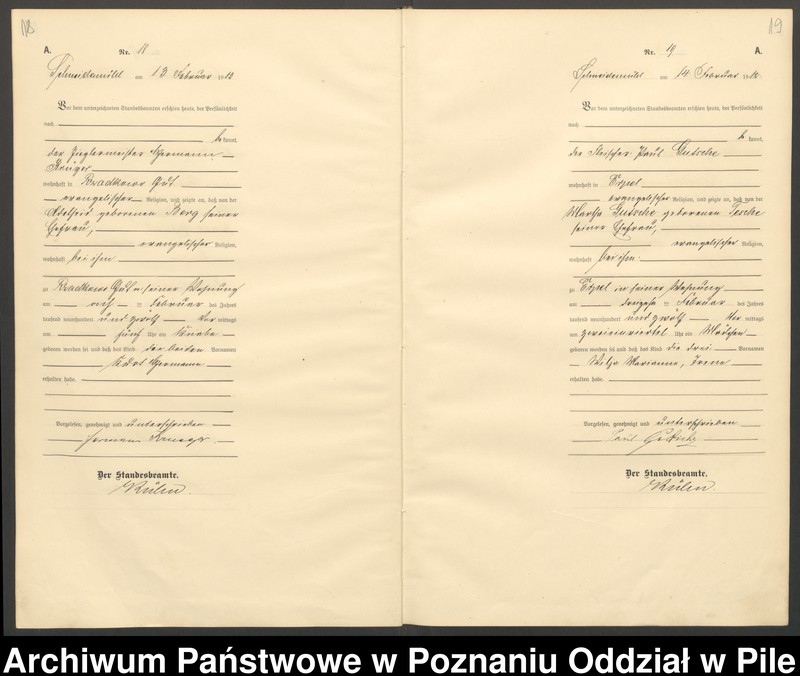 18
A.
Nr. 11
Schneidemühl am 13 Februar 1912
Vor dem unterzeichneten Standesbeamten erschien heute, der Persönlichkeit
nach
be kannt,
der Zieglermeister Hermann
Krüger
wohnhaft in Gut
evangelischer Religion, und zeigte an, daß von der
geborenen Berg seiner
Ehefrau,
evangelischer Religion,
wohnhaft bei ihm
zu Gut in seiner Wohnung
am Februar des Jahres
tausend neunhundert und zwölf Vor mittags
um fünf Uhr ein Knabe
geboren worden sei und daß das Kind die beiden Vornamen
Hermann
erhalten habe.
Vorgelesen, genehmigt und unterschrieben
Hermann Krueger
Der Standesbeamte.
19
Nr. 19 A.
Schneidemühl am 14 Februar 1912
Vor dem unterzeichneten Standesbeamten erschien heute, der Persönlichkeit
nach
be kannt,
der Fleischer Paul Gutsche
wohnhaft in Erpel
evangelischer Religion, und zeigte an, daß von der
Martha Gutsche geborenen Teske
seiner Ehefrau,
evangelischer Religion,
wohnhaft bei ihm
zu Erpel in seiner Wohnung
am Februar des Jahres
tausend neunhundert und zwölf Vor mittags
um Uhr ein Mädchen
geboren worden sei und daß das Kind die drei Vornamen
Marianne, Irene
erhalten habe.
Vorgelesen, genehmigt und unterschrieben
Paul Gutsche
Der Standesbeamte.
Archiwum Państwowe w Poznaniu Oddział w Pile